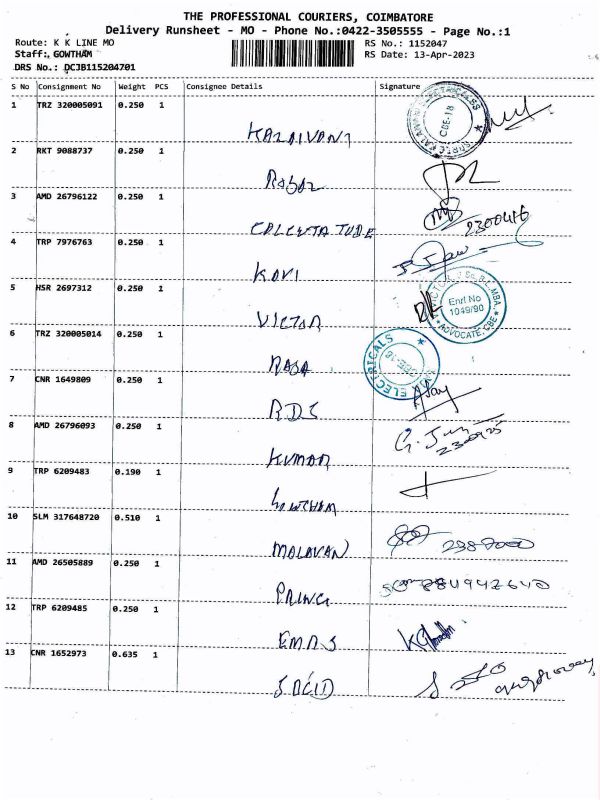 THE PROFESSIONAL COURIERS, COIMBATORE
Delivery Runsheet - MO - Phone No.:0422-3505555 - Page No.:1
Route: K K LINE MO RS No.: 1152047
Staff: GOWTHAM RS Date: 13-Apr-2023
DRS No.: DCJB115204701
S No Consignment No Weight PCS Consignee Details Signature
1 TRZ 320005091 0.250 1 KALAIVANI
CBE-18
2 RKT 9088737 0.250 1
3 AMD 26796122 0.250 1 CALCUTTA TUBE 2300416
4 TRP 7976763 0.250 1 KAVI
5 HSR 2697312 0.250 1 VICTOR
Enrl No
1049/90
ADVOCATE, CBE
6 TRZ 320005014 0.250 1 RAJA
ELECTRICALS
7 CNR 1649809 0.250 1 RDS Ajay
8 AMD 26796093 0.250 1 KUMAR
9 TRP 6209483 0.190 1 GOWTHAM
10 SLM 317648720 0.510 1 MALAVAN
11 AMD 26505889 0.250 1
12 TRP 6209485 0.250 1 EMAS
13 CNR 1652973 0.635 1